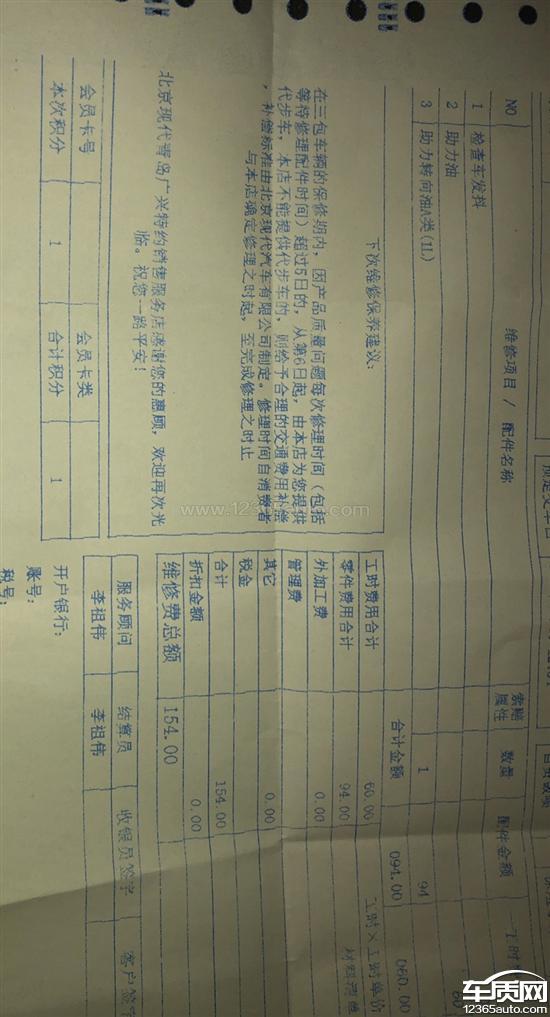 NO 维修项目 / 配件名称 索赔属性 数量 配件金额
1 检查车/发料
2 助力油
3 助力转向油A类(1L) 1 94
合计金额 094.00 060.00
下次维修保养建议:
在三包车辆的保修期内，因产品质量问题每次修理时间（包括
等待修理配件时间）超过5日的，从第6日起，由本店为您提供
代步车，本店不能提供代步车的，则给予合理的交通费用补偿
，补偿标准由北京现代汽车有限公司制定。修理时间自消费者
与本店确定修理之时起，至完成修理之时止
北京现代青岛广兴特约销售服务店感谢您的惠顾，欢迎再次光
临。祝您一路平安！
工时费用合计 60.00 工时×工时单价
零件费用合计 94.00
外加工费 0.00
管理费
其它 0.00
税金
合计 154.00
折扣金额 0.00
维修费总额 154.00
会员卡号 会员卡类
本次积分 1 合计积分 1
服务顾问 结算员 收银员签字
李祖伟 李祖伟
开户银行:
账号:
税号:
www.12365auto.com
车质网
12365auto.com